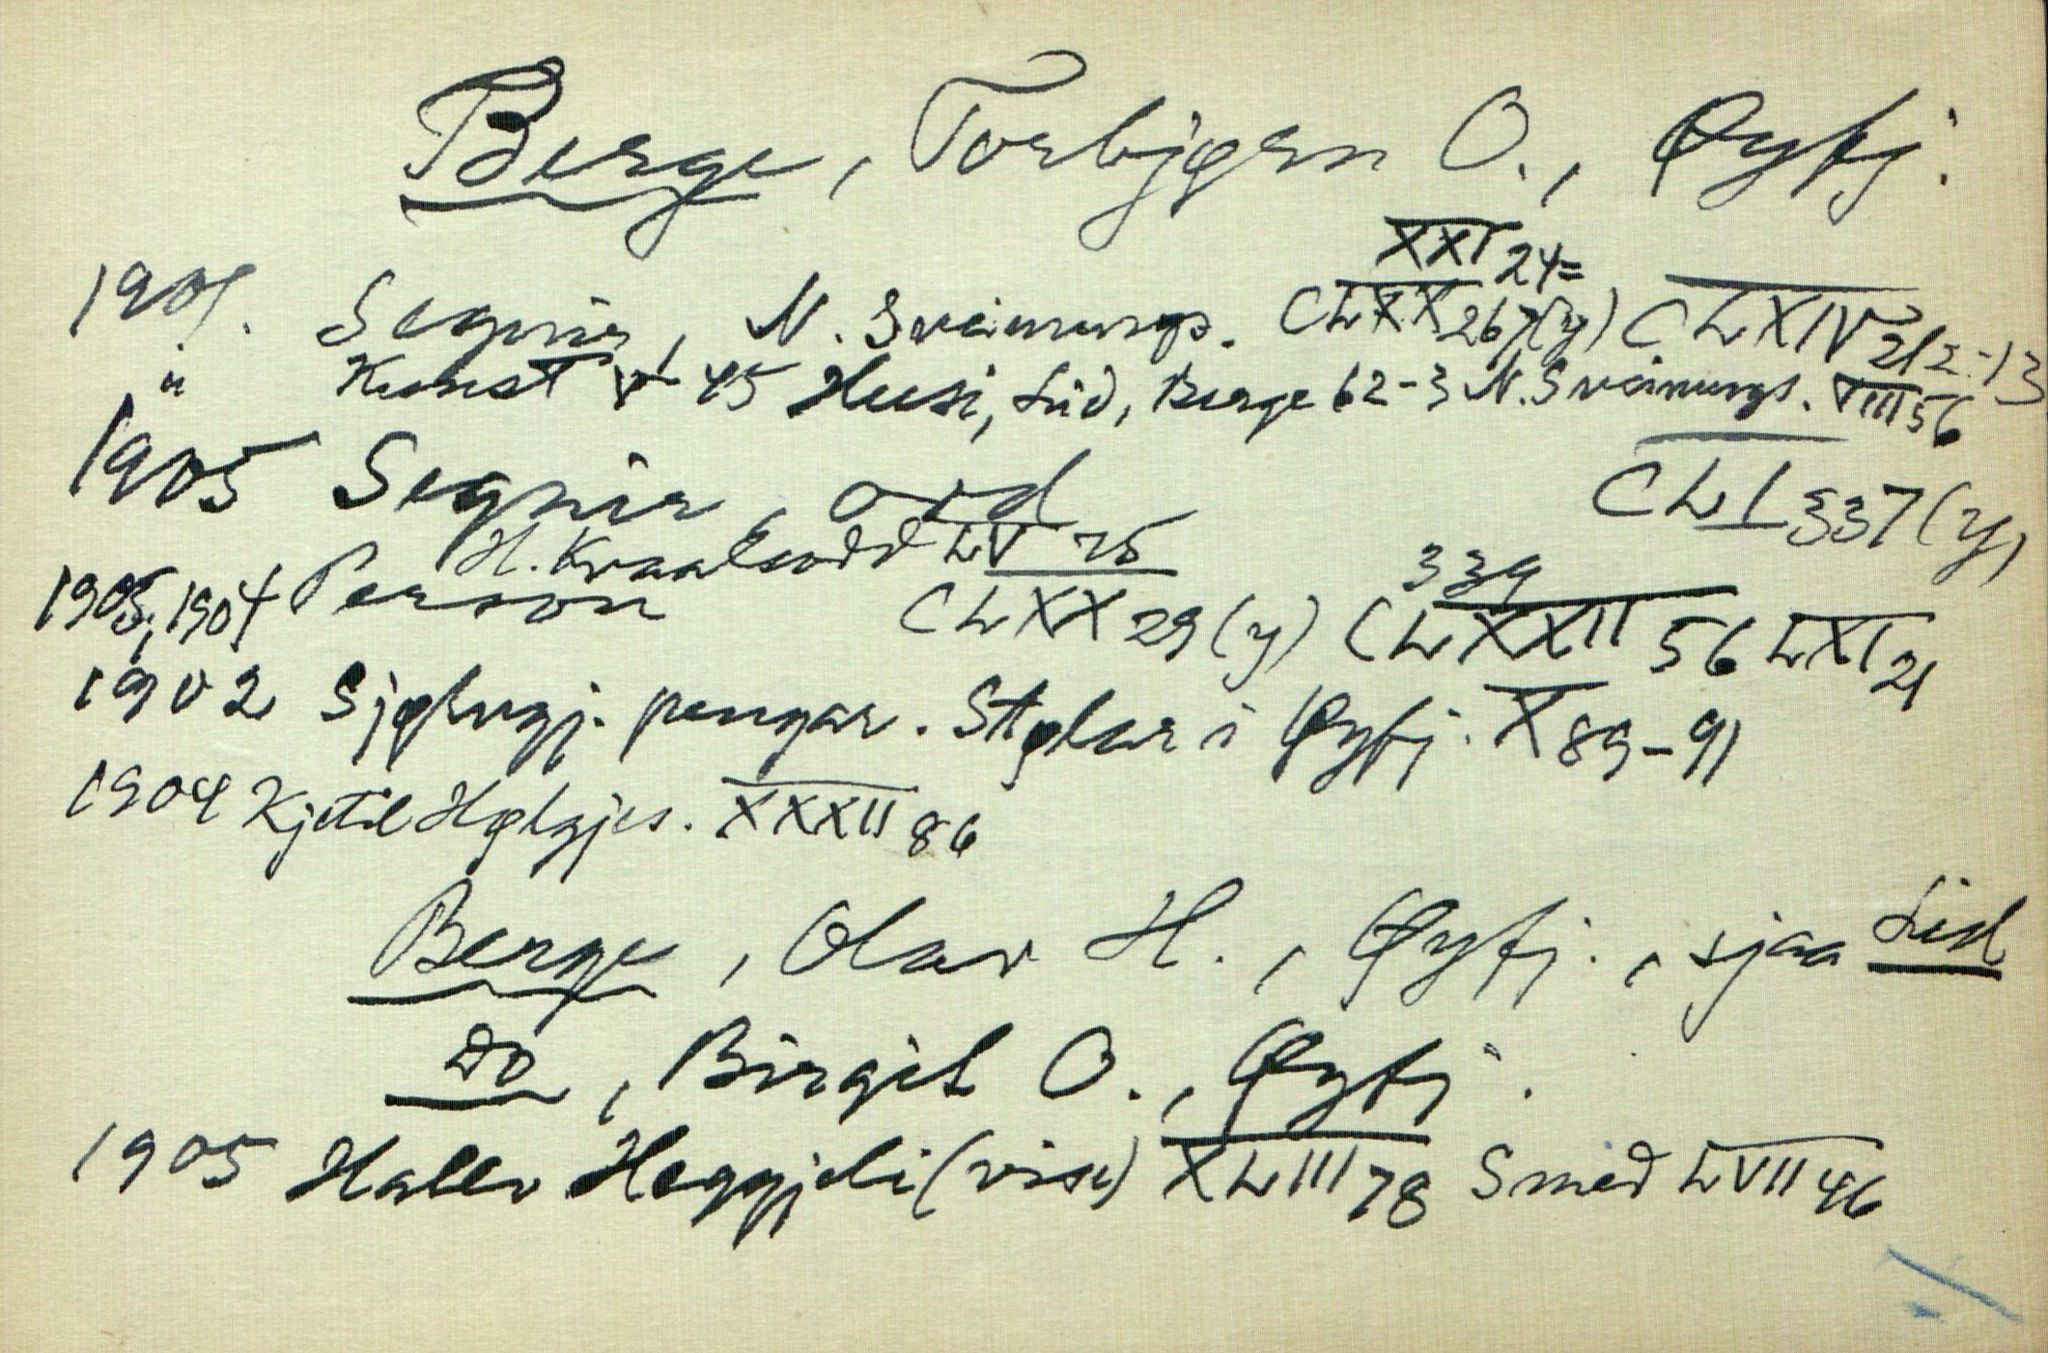 Berge, Torbjørn O., Øyfj.
XXI 24=
1901. Segnir, N. Sveinungs. CLXX 267(y) CLXIV 212-13
" Kunst VI 45 Husi, Lid, Berge 62-3 N. Sveinungs. VIII 56
1905 Segnir, ord CLI 337(y)
H. Kvaalsodd LV 75 339
1905, 1904 Person CLXX 29(y) CLXXII 56 LXI 21
1902 Sjølvgj. pengar. Stølar i Øyfj. X 89-91
1904 Kjetil Hølgjes. XXXII 86
Berge, Olav H., Øyfj., sjaa Lid
Do, Birgit O., Øyfj.
1905 Hallv Heggjeli (vise) XLIII 78 Smed LVII 46